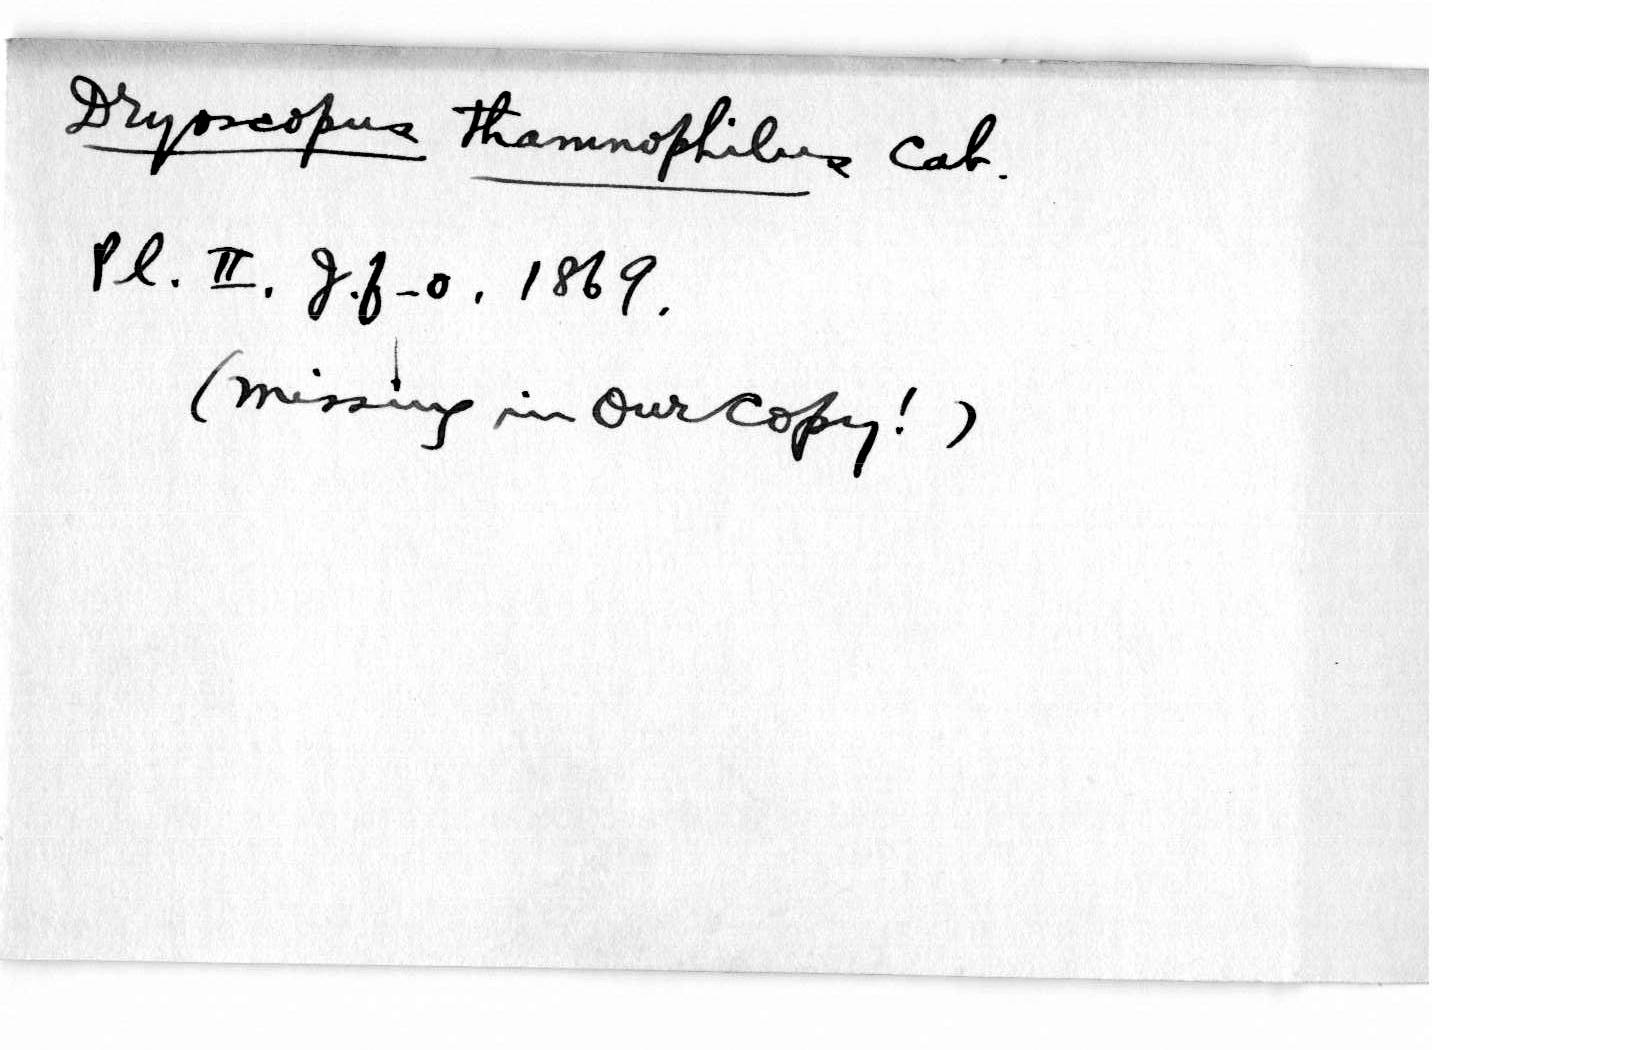 Dryoscopus thamnophilus Cab.
Pl. II. J.f-o. 1869.
(missing in our copy!)